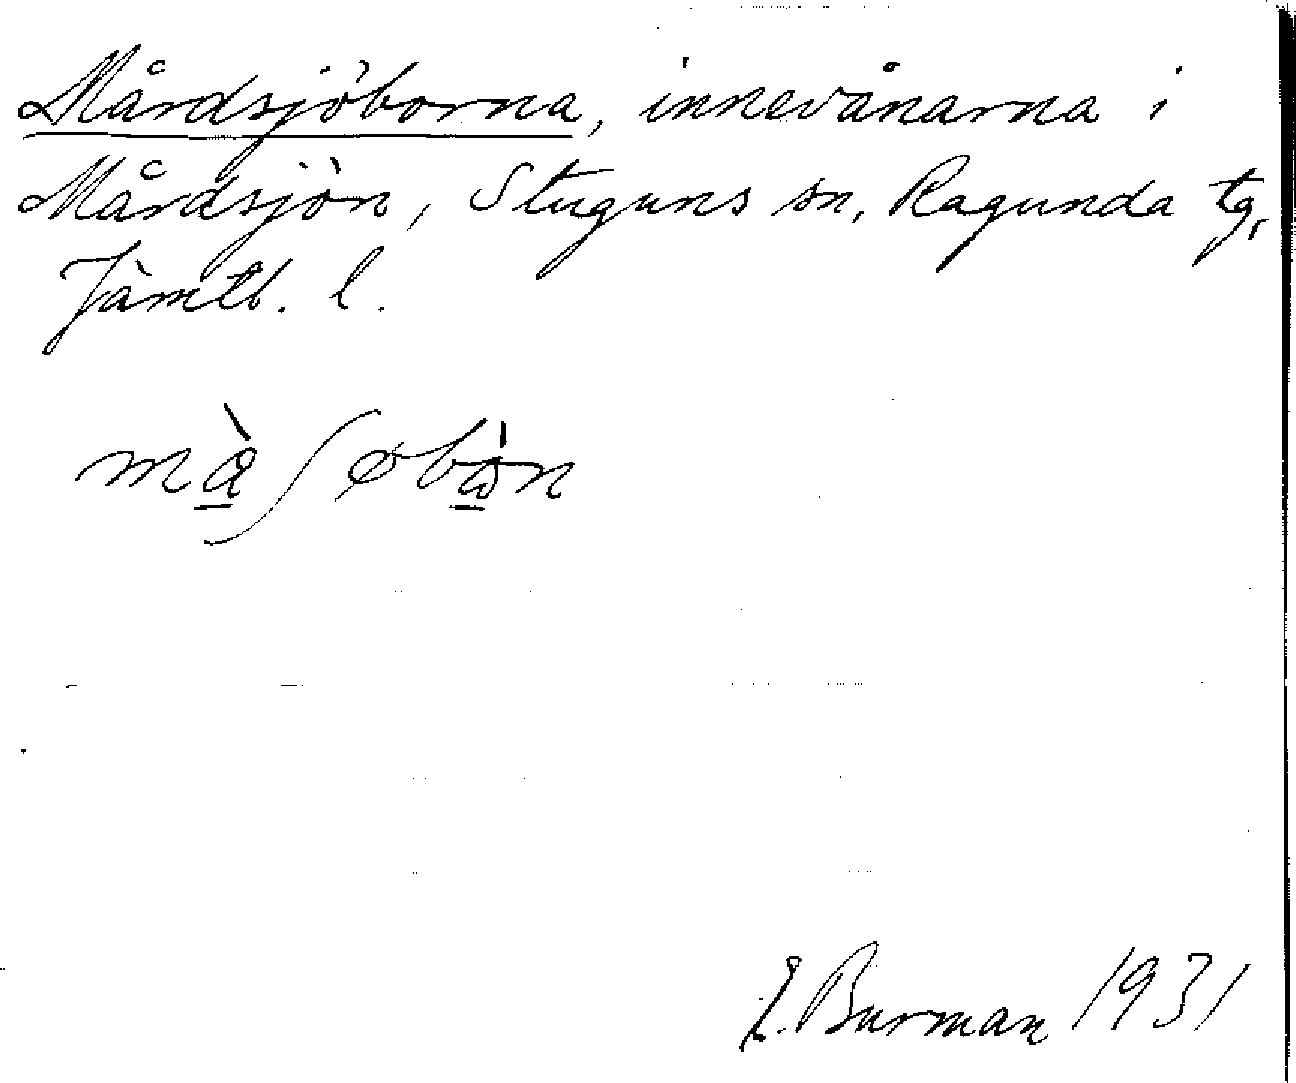 Mårdsjöborna, innevånarna i
Mårdsjön, Stuguns sn, Ragunda tg,
Jämtl. l.
må̀ʃøbå̀n
E. Burman 1931